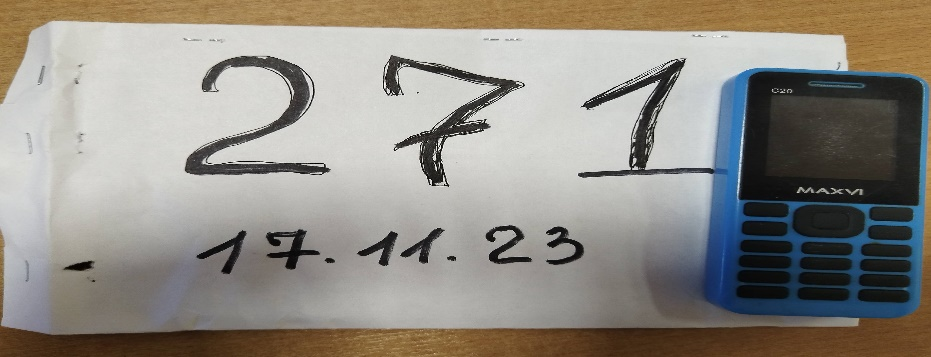 271
17.11.23
C20
MAXVI